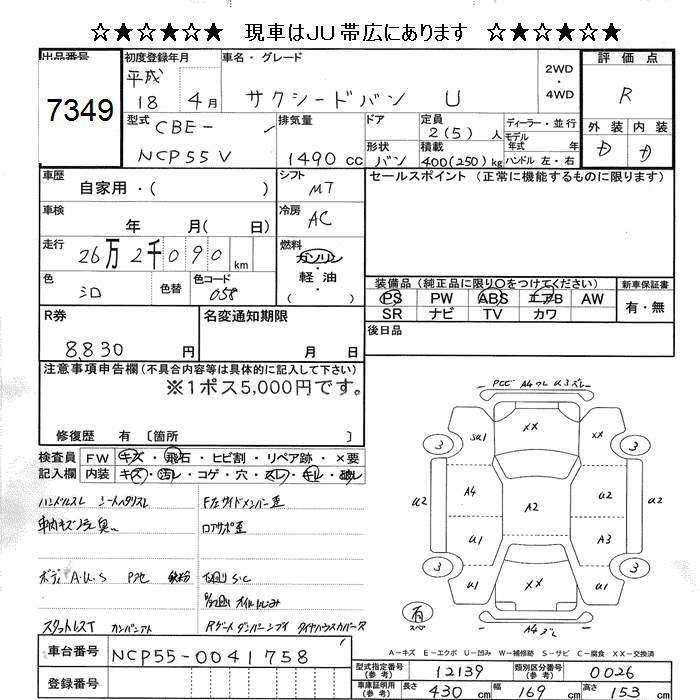 ☆★☆★☆★ 現車はJU帯広にあります ☆★☆★☆★
出品番号
7349
初度登録年月
平成
18 4月
車名・グレード
サクシードバン U
2WD
・
4WD
評価点
R
型式
CBE-
NCP55V
排気量
1490 cc
ドア
形状
バン
定員
2(5) 人
積載
400(250) kg
ディーラー・並行
モデル
年式 年
ハンドル 左・右
外装 内装
D D
車歴
自家用・( )
シフト
MT
セールスポイント (正常に機能するものに限ります)
車検
年 月( 日)
冷房
AC
走行
26万2千090 km
燃料
ガソリン
軽油
( )
色
シロ
色替
色コード
058
装備品 (純正品に限り○をつけてください)
PS PW ABS エアB AW
SR ナビ TV カワ
新車保証書
有・無
R券
8,830 円
名変通知期限
月 日
後日品
注意事項申告欄(不具合内容等は具体的に記入して下さい)
※1ポス5,000円です。
修復歴 有 〔箇所 〕
検査員
記入欄
FW キズ・飛石・ヒビ割・リペア跡・×要
内装 キズ・汚レ・コゲ・穴・スレ・キレ・破レ
ハンドルスレ シートヘタリスレ
車内キズ汚臭
F左サイドメンバー歪
ロアサポ歪
ボディA.U.S P他 鉄粉
下回りS.C
スタットレスT カンバンアト
Rゲートダンパーフイ タイヤハウスカバーヌ
PCビ A4ワレ U3ズレ
3 SU1 XX XX 3
U2 A4 A2 U2 U2
U1 A3
3 U1 XX U1 3
有
スペア
A4ズレ
A-キズ E-エクボ U-凹み W-補修跡 S-サビ C-腐食 XX-交換済
車台番号
NCP55-0041758
登録番号
型式指定番号
(参考)
12139
類別区分番号
(参考)
0026
車庫証明用
(参考)
長さ 430 cm 幅 169 cm 高さ 153 cm